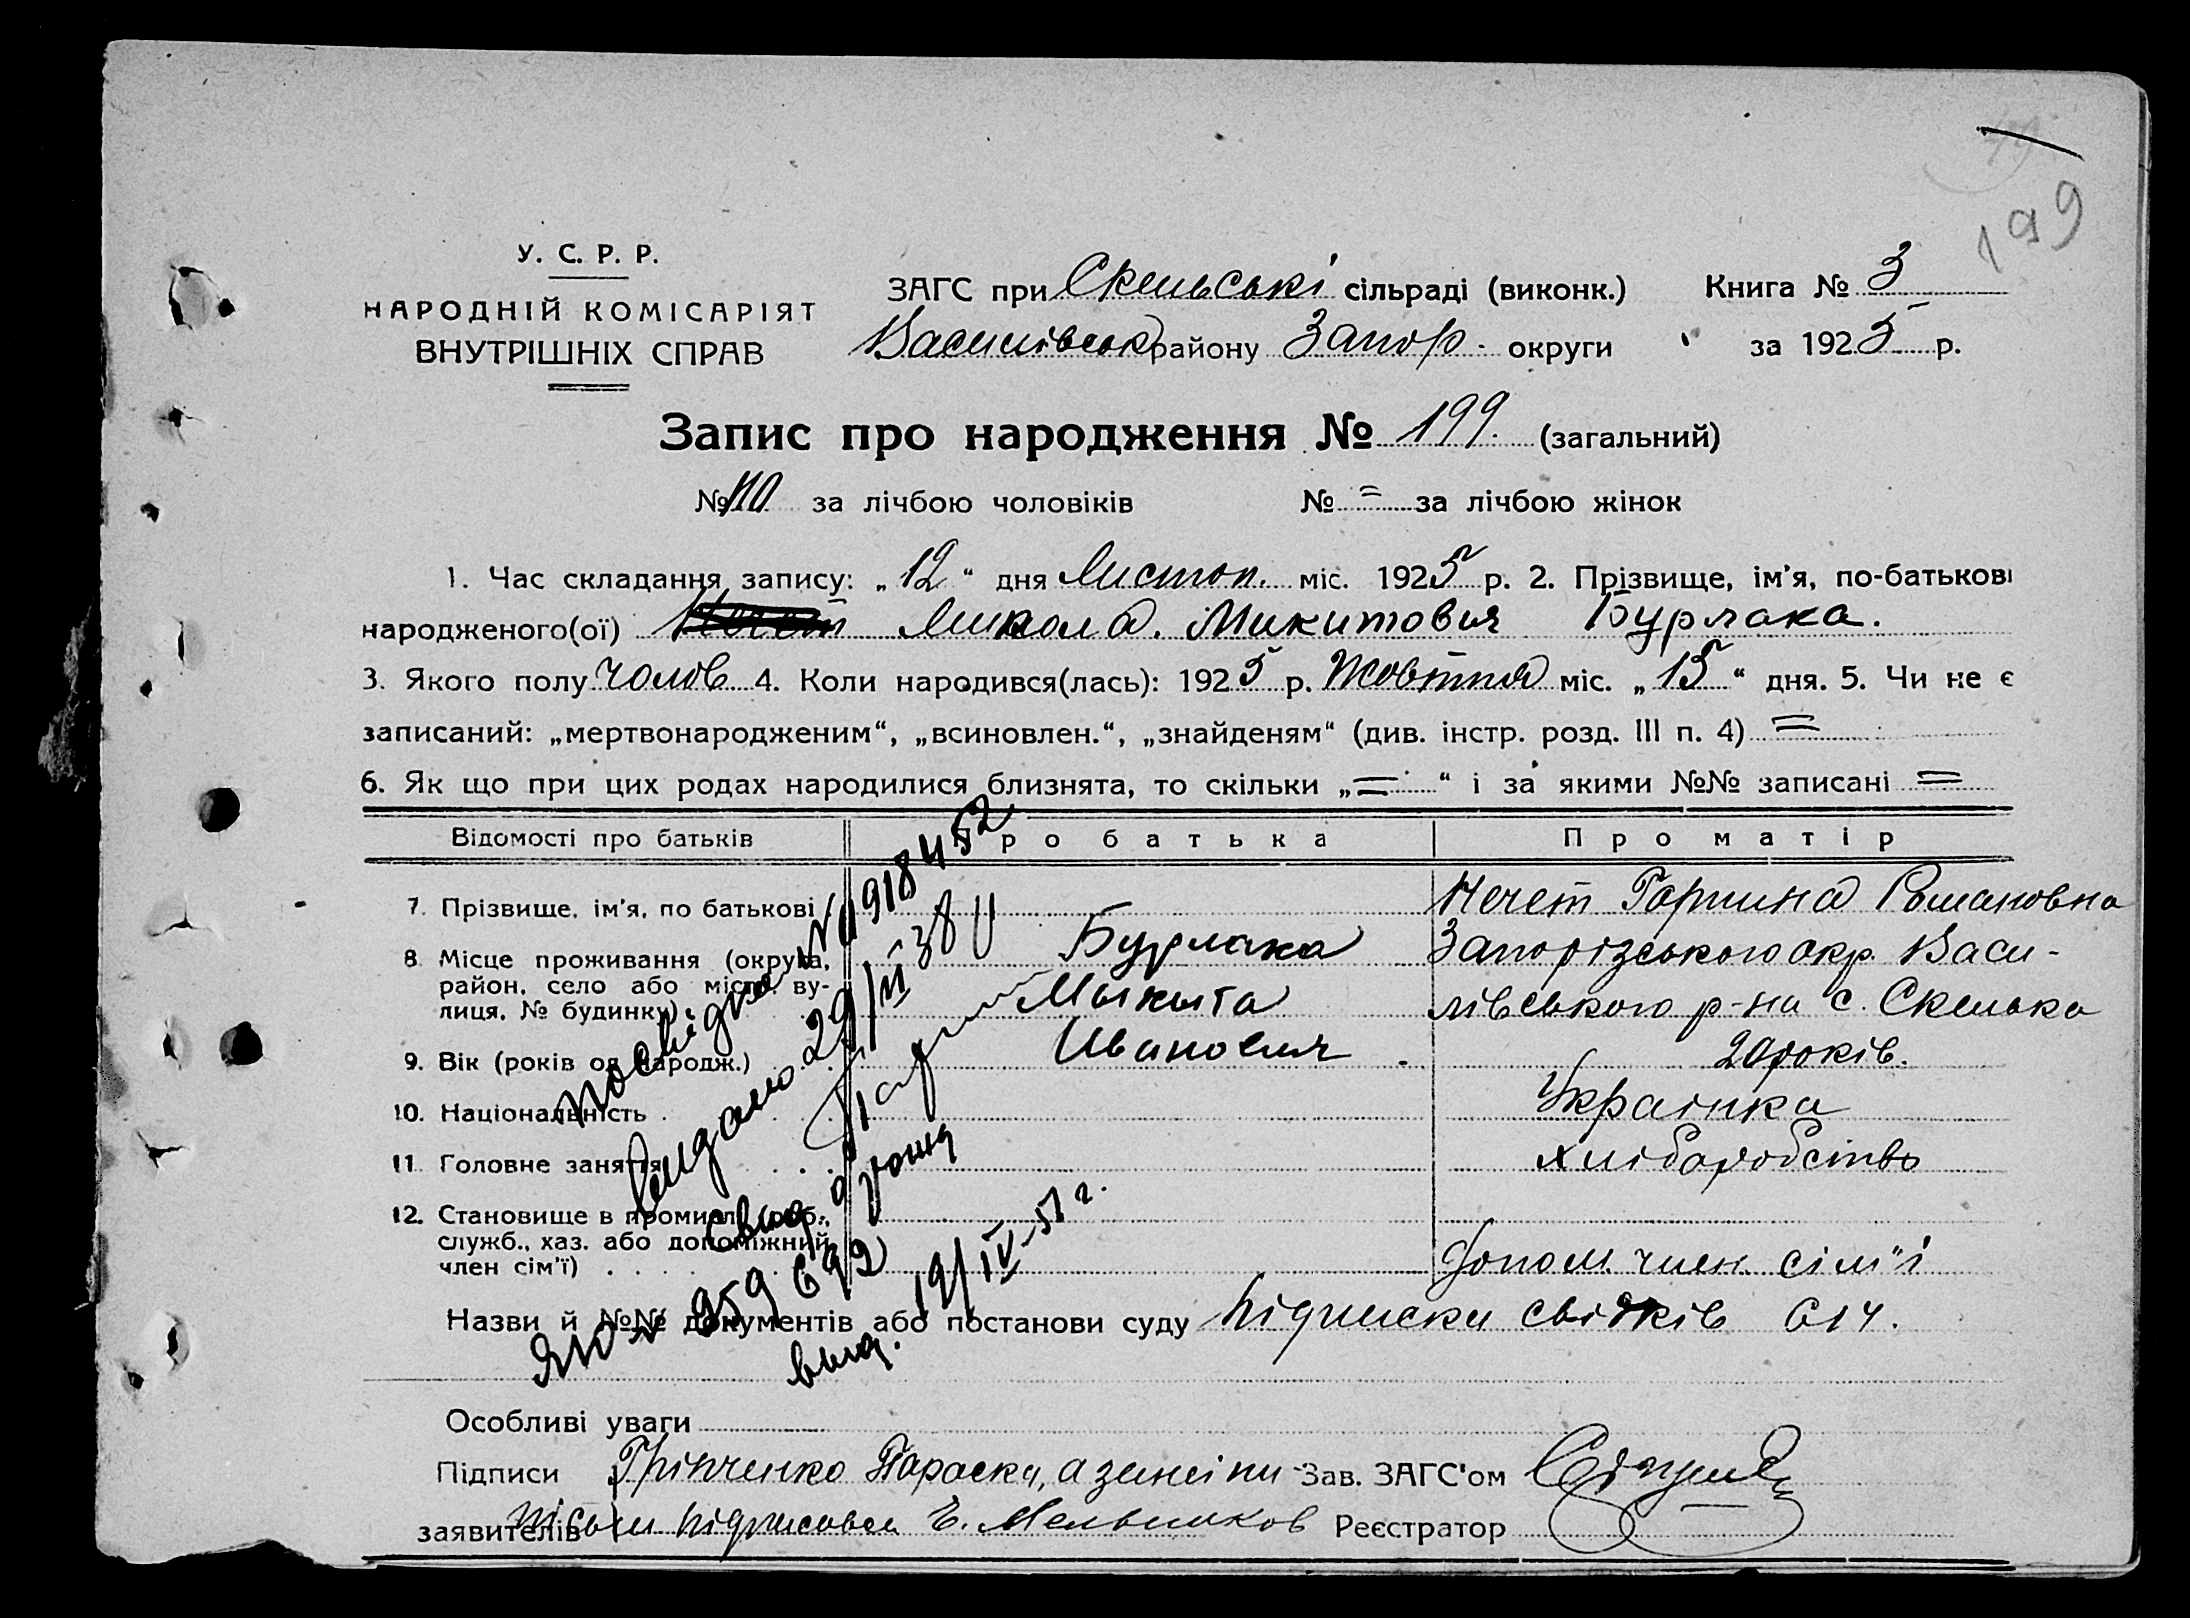 199
У. С. Р. Р.
НАРОДНІЙ КОМІСАРІЯТ
ВНУТРІШНІХ СПРАВ
ЗАГС при Скельські сільраді (виконк.) Книга № 3
Василівськ району Запор. округи " за 1925 р.
Запис про народження № 199. (загальний)
№ 110 за лічбою чоловіків № = за лічбою жінок
1. Час складання запису: „12“ дня Листоп. міс. 1925 р. 2. Прізвище, ім'я, по-батькові
народженого(ої) Микола. Микитович Бурлака.
3. Якого полу чолов 4. Коли народився(лась): 1925 р. Жовтня міс. „15“ дня. 5. Чи не є
записаний: „мертвонародженим“, „всиновлен.“, „знайденям“ (див. інстр. розд. III п. 4) =
6. Як що при цих родах народилися близнята, то скільки „=“ і за якими №№ записані =
Відомості про батьків Про батька Про матір
7. Прізвище, ім'я, по батькові Нечет Романовна
8. Місце проживання (округа, Бурлака Запорізького окр. Васи-
район, село або місто, ву-
лиця, № будинку) Мыкыта лівського р-на с. Скелька
9. Вік (років од народж.) Иванович. 20 років.
10. Національність Українка
11. Головне заняття хліборобство
12. Становище в промислі (роб.,
служб., хаз. або допоміжний
член сім'ї) допом. член. сім"ї
Назви й №№ документів або постанови суду підписки свідків 614.
Особливі уваги
Підписи Грінченко Параска, а за неі ни- Зав. ЗАГС'ом
заявителів підписався Мельников Реєстратор
посвідка № 918452
видано 29/VI 38
свид.
ЯЮ № 959692
выд. 19/IV-51 г.